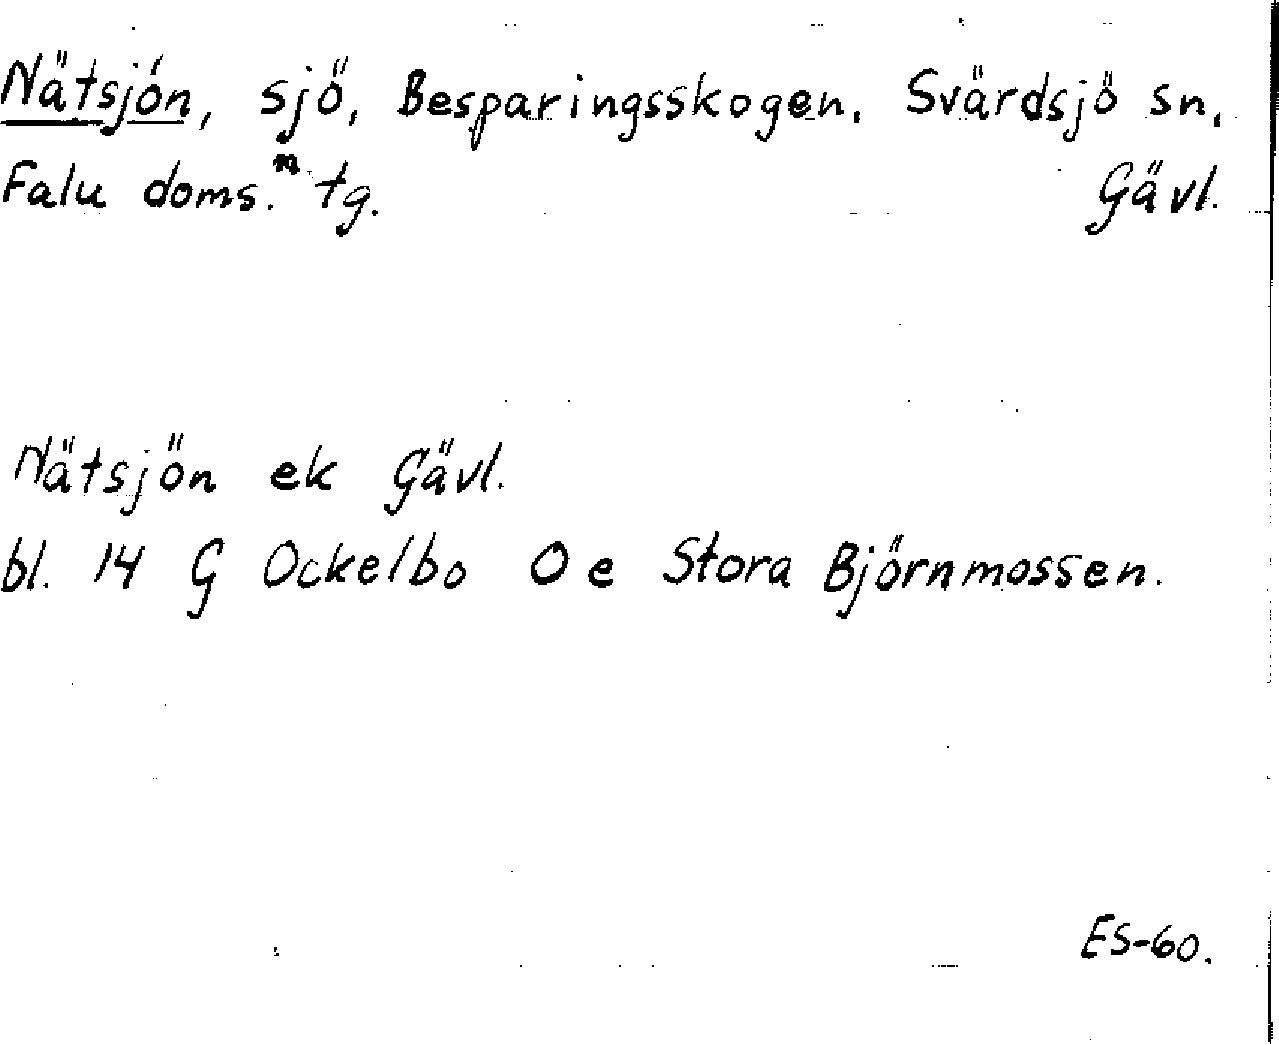 Nätsjön, sjö, Besparingsskogen, Svärdsjö sn,
Falu doms. n. tg. Gävl.
Nätsjön ek Gävl.
bl. 14 G Ockelbo O e Stora Björnmossen.
ES-60.